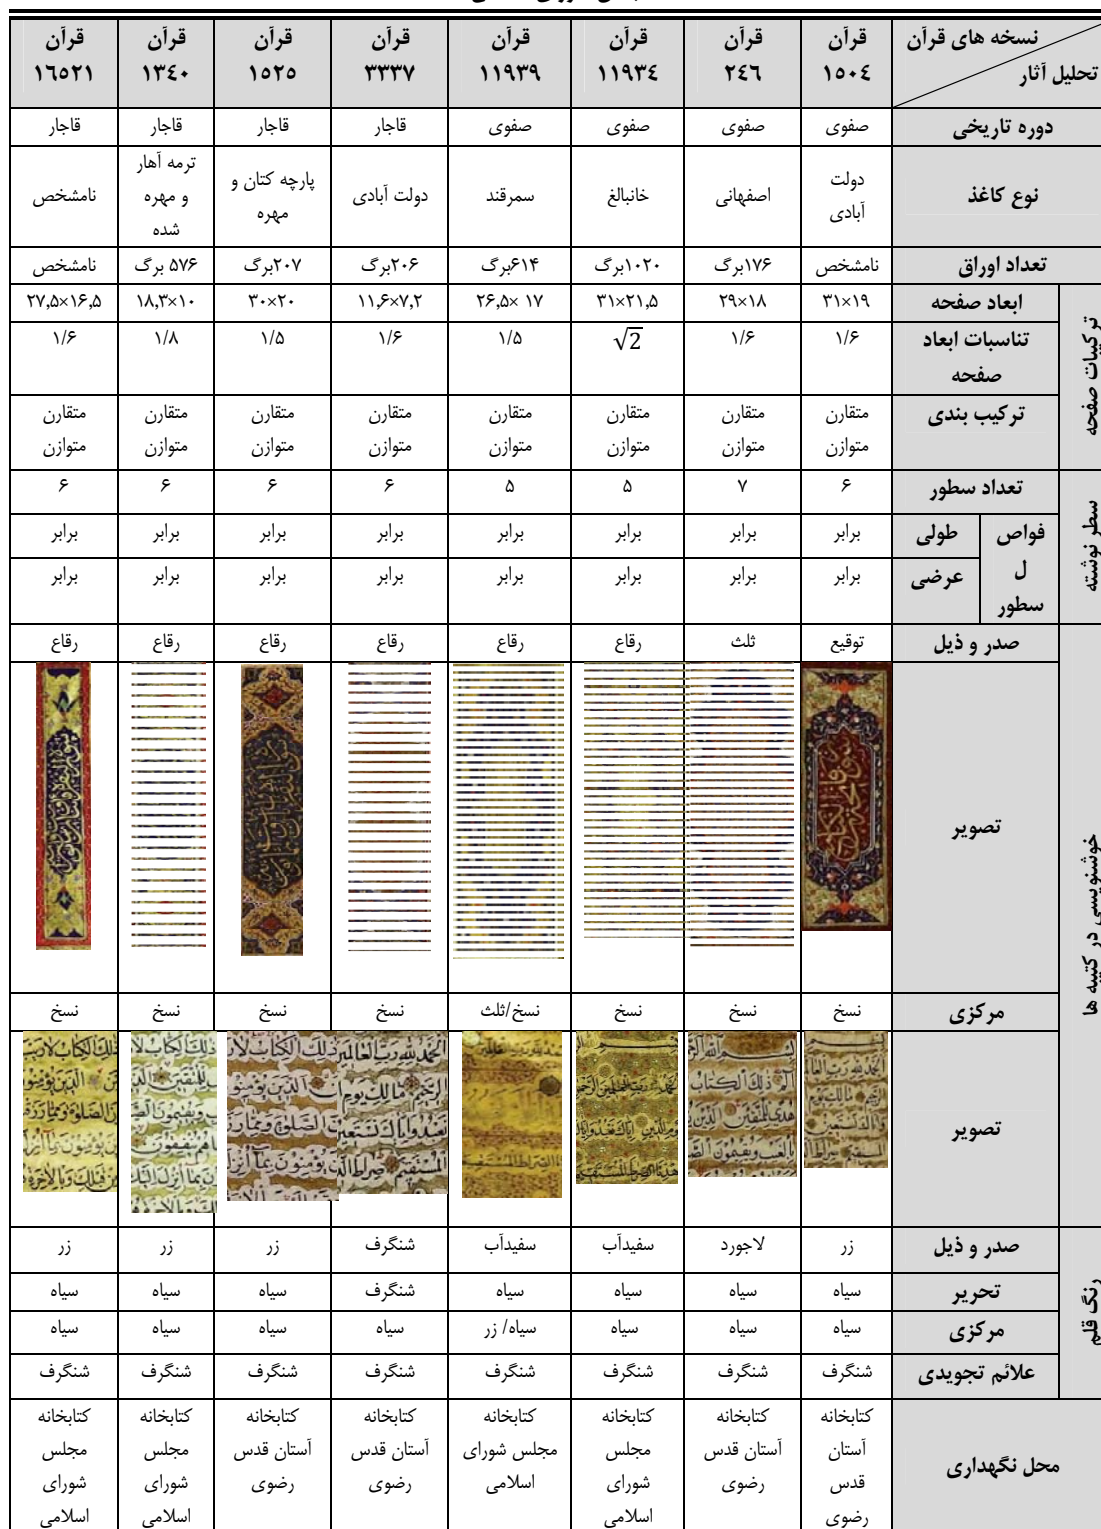 نسخه های قرآن
تحلیل آثار
قرآن ۱۵۰٤
قرآن ۲٤٦
قرآن ۱۱۹۳٤
قرآن ۱۱۹۳۹
قرآن ۳۳۳۷
قرآن ۱۵۲۵
قرآن ۱۳٤۰
قرآن ۱٦۵۲۱
دوره تاریخی صفوی صفوی صفوی صفوی قاجار قاجار قاجار قاجار
نوع کاغذ دولت آبادی اصفهانی خانبالغ سمرقند دولت آبادی پارچه کتان و مهره ترمه آهار و مهره شده نامشخص
تعداد اوراق نامشخص ۱۷۶برگ ۱۰۲۰برگ ۶۱۴برگ ۲۰۶برگ ۲۰۷برگ ۵۷۶ برگ نامشخص
ترکیبات صفحه
ابعاد صفحه ۳۱×۱۹ ۲۹×۱۸ ۳۱×۲۱٫۵ ۲۶٫۵× ۱۷ ۱۱٫۶×۷٫۲ ۳۰×۲۰ ۱۸٫۳×۱۰ ۲۷٫۵×۱۶٫۵
تناسبات ابعاد صفحه ۱/۶ ۱/۶ √2 ۱/۵ ۱/۶ ۱/۵ ۱/۸ ۱/۶
ترکیب بندی متقارن متوازن متقارن متوازن متقارن متوازن متقارن متوازن متقارن متوازن متقارن متوازن متقارن متوازن متقارن متوازن
سطر نوشته
تعداد سطور ۶ ۷ ۵ ۵ ۶ ۶ ۶ ۶
فواصل سطور
طولی برابر برابر برابر برابر برابر برابر برابر برابر
عرضی برابر برابر برابر برابر برابر برابر برابر برابر
خوشنویسی در کتیبه ها
صدر و ذیل توقیع ثلث رقاع رقاع رقاع رقاع رقاع رقاع
تصویر
مرکزی نسخ نسخ نسخ نسخ/ثلث نسخ نسخ نسخ نسخ
تصویر
رنگ قلم
صدر و ذیل زر لاجورد سفیدآب سفیدآب شنگرف زر زر زر
تحریر سیاه سیاه سیاه سیاه شنگرف سیاه سیاه سیاه
مرکزی سیاه سیاه سیاه سیاه/ زر سیاه سیاه سیاه سیاه
علائم تجویدی شنگرف شنگرف شنگرف شنگرف شنگرف شنگرف شنگرف شنگرف
محل نگهداری کتابخانه آستان قدس رضوی کتابخانه آستان قدس رضوی کتابخانه مجلس شورای اسلامی کتابخانه مجلس شورای اسلامی کتابخانه آستان قدس رضوی کتابخانه آستان قدس رضوی کتابخانه مجلس شورای اسلامی کتابخانه مجلس شورای اسلامی